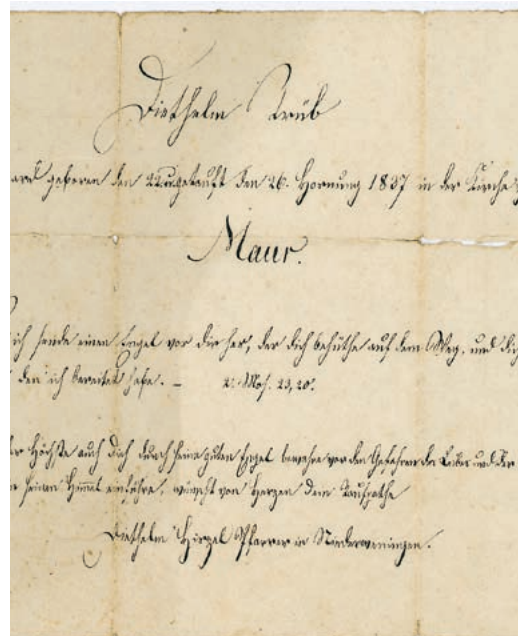 Diethelm Trüb
ward geboren den 22. u. getauft den 26. Hornung 1837 in der Kirche
Maur.
ich sende einen Engel vor dir her, der dich behüthe auf dem Weg, und dich
den ich bereitet habe. – 2. Mos. 23,20.
der Höchste auch Dich durch seine guten Engel bewahre vor den Gefahren des Leibes und der
in seinen Himmel einführe, wünscht von Herzen dein Taufpathe
Diethelm Hirzel Pfarrer in Niederweningen.